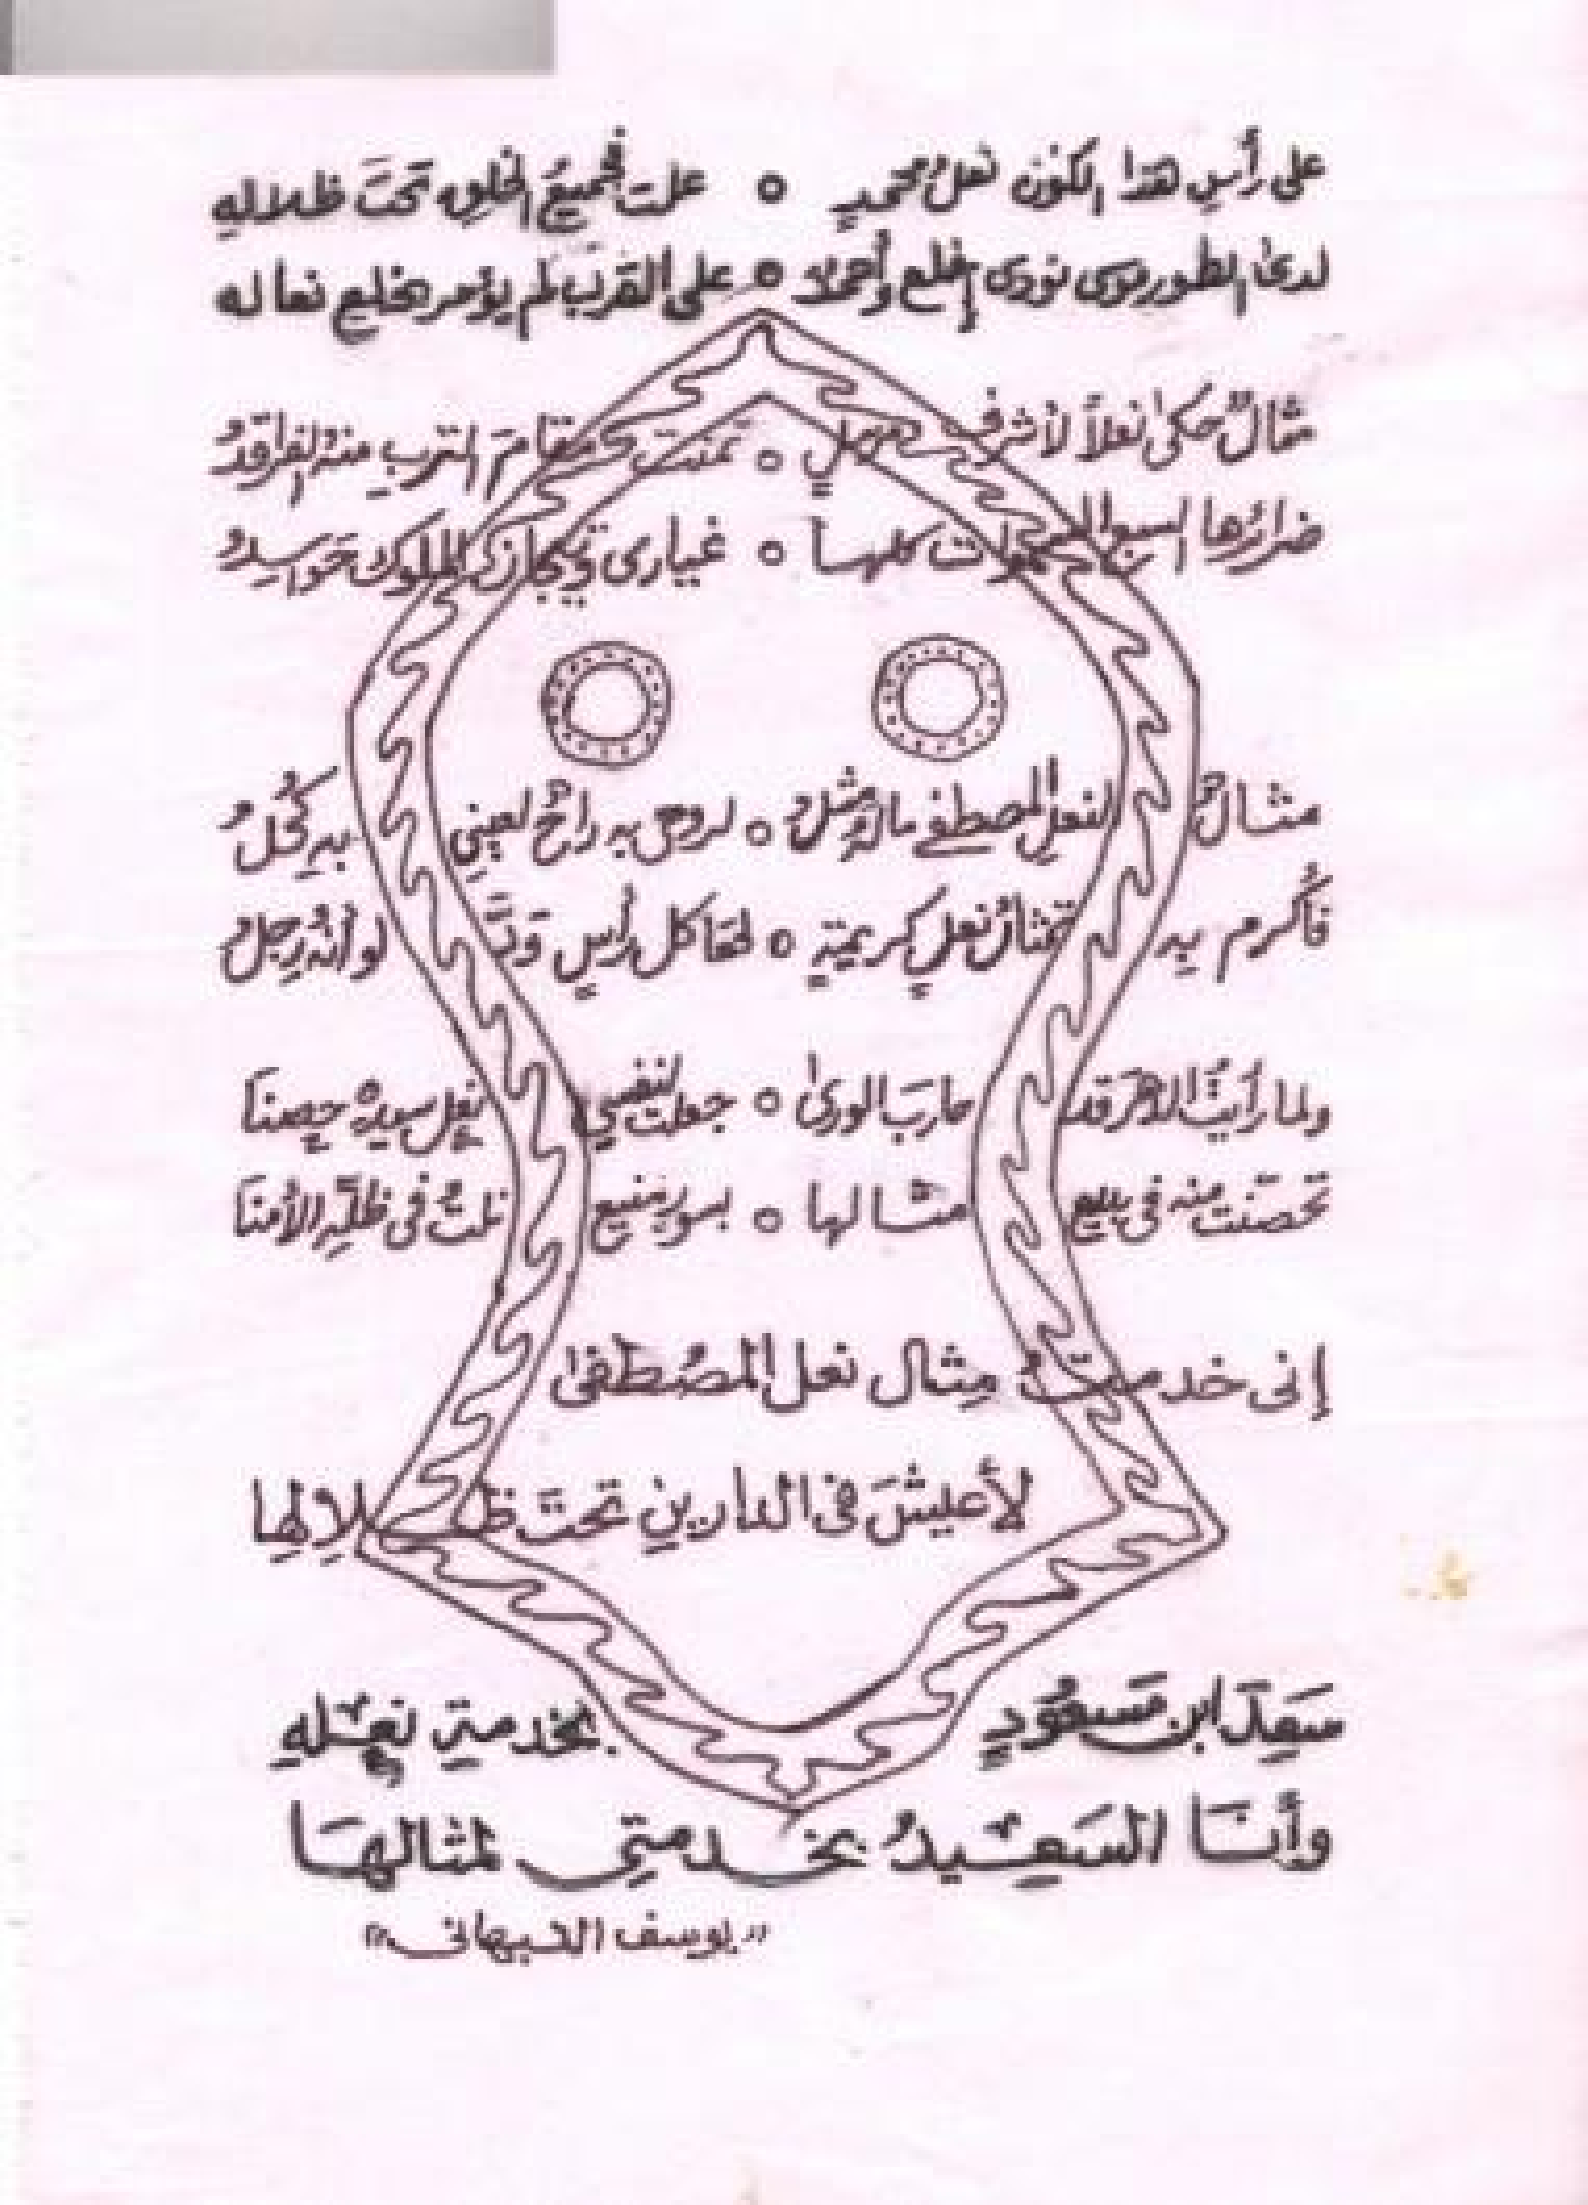 على رأسِ هذا الكَوْنِ نعلُ محمدٍ ه علت فجميعُ الخلقِ تحتَ ظلالهِ
لدىٰ الطورِ موسى نودى إخلع وأحمدٌ ه على القربِ لم يؤمر بخلعِ نعاله
مثالٌ حكىٰ نعلاً لأشرفِ مرسلٍ ه تمنت مقامَ التربِ منهُ الفراقدُ
ضرائرها السبع السموات كلها ه غيارى وتيجان الملوك حَواسِدُ
مثالٌ لنعلِ المصطفى ماله مثلُ ه لروحى به راحٌ لعينى بهِ كُحْلُ
فأكرم بهِ تمثالُ نعلٍ كريمةٍ ه لها كل رأسٍ وَدَّ لو أنهُ رِجلُ
ولما رأيتُ الدهرَ قد حاربَ الورىٰ ه جعلت لنفسي نعل سيدهْ حِصنَا
تحصنت منه فى بديع مثالها ه بسورٍ منيع نلتُ فى ظلِّهِ الأمنَا
إنى خدمتُ مِثال نعل المصُطفىٰ
لأعيشَ فى الدارينِ تحتَ ظلالِهِا
سَعِدَ ابن مَسعُودٍ بخدمةِ نعلهِ
وأنَا السَعِيدُ بخدمتى لمثالهَا
"يوسف النبهانى"